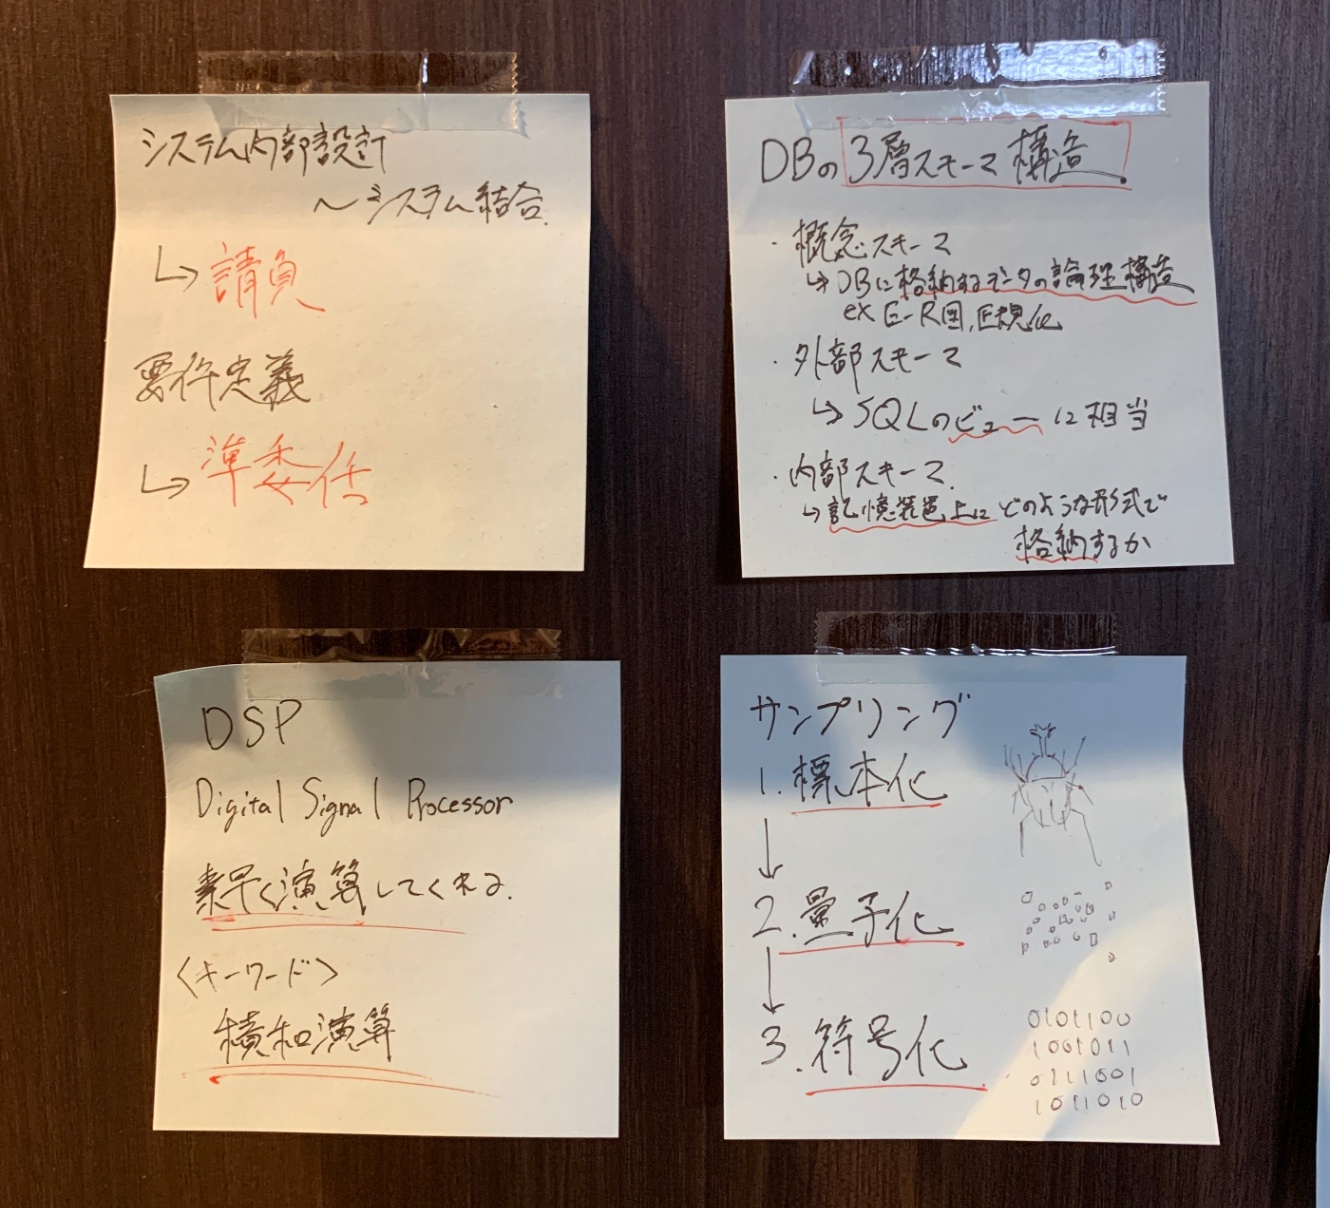 システム内部設計
～システム結合.
↳請負
要件定義
↳準委任
DBの3層スキーマ構造.
・概念スキーマ
↳DBに格納するデータの論理構造
ex E-R図,正規化
・外部スキーマ
↳SQLのビューに相当
・内部スキーマ.
↳記憶装置上にどのような形式で
格納するか
DSP
Digital Signal Processor
素早く演算してくれる.
<キーワード>
積和演算
サンプリング
1.標本化
↓
2.量子化
↓
3.符号化
0101100
1001011
0111001
1011010